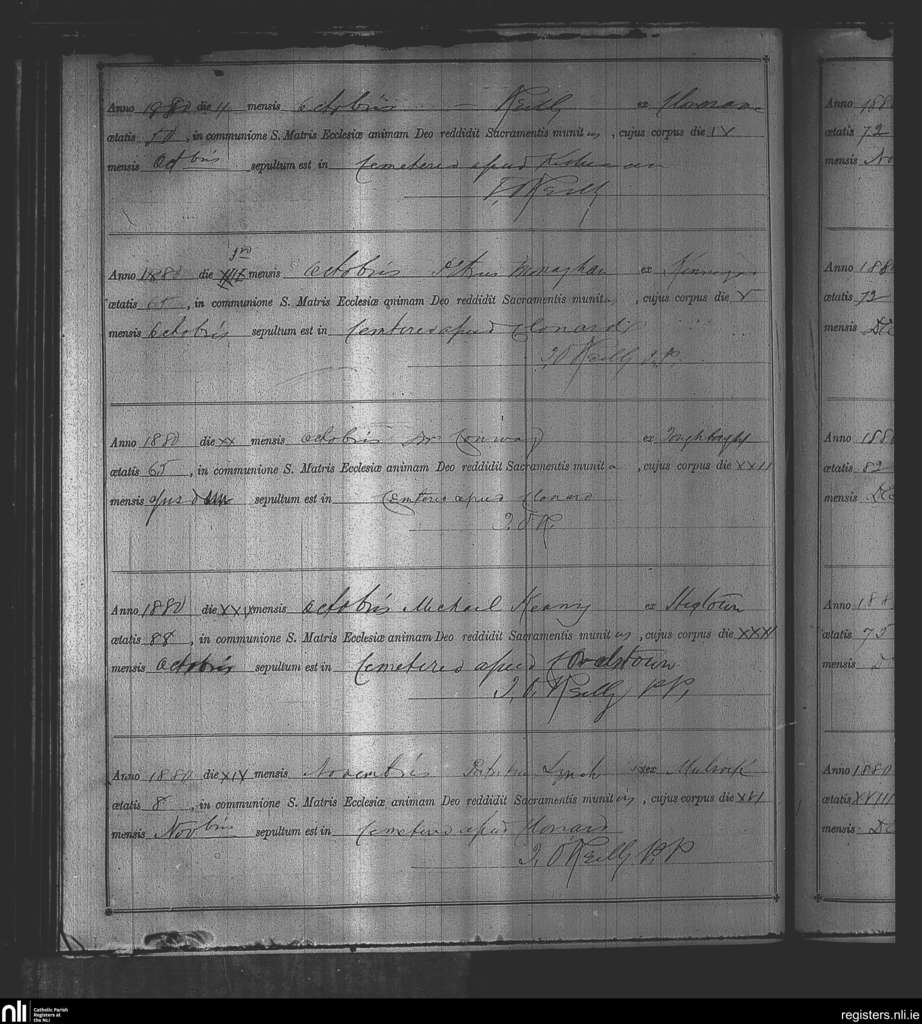 Anno 1880 die 4 mensis Octobris – Reilly ex
ætatis 50, in communione S. Matris Ecclesiæ animam Deo reddidit Sacramentis munitus, cujus corpus die IX
mensis Octobris sepultum est in Cemeterio apud
O'Reilly
Anno 1880 die 3rd mensis Octobris Petrus Monaghan ex
ætatis 65, in communione S. Matris Ecclesiæ animam Deo reddidit Sacramentis munit , cujus corpus die V
mensis Octobris sepultum est in Cemeterio apud Clonard
J. O'Reilly P.P.
Anno 1880 die XX mensis Octobris Conway ex
ætatis 65, in communione S. Matris Ecclesiæ animam Deo reddidit Sacramentis munita, cujus corpus die XXII
mensis ejusdem sepultum est in Cemeterio apud Clonard
J. O'R.
Anno 1880 die mensis Octobris Michael Heany ex
ætatis 88, in communione S. Matris Ecclesiæ animam Deo reddidit Sacramentis munitus, cujus corpus die XXXI
mensis Octobris sepultum est in Cemeterio apud
J. O'Reilly P.P.
Anno 1880 die XIV mensis Novembris Lynch ex
ætatis 8, in communione S. Matris Ecclesiæ animam Deo reddidit Sacramentis munit , cujus corpus die XVI
mensis Novbris sepultum est in Cemeterio apud Clonard
J. O'Reilly P.P.
Anno 188
ætatis 72
mensis No
Anno 188
ætatis 72
mensis De
Anno 188
ætatis 82
mensis De
Anno 188
ætatis 75
mensis D
Anno 1880
ætatis XVIII
mensis De
nli Catholic Parish Registers at the NLI
registers.nli.ie